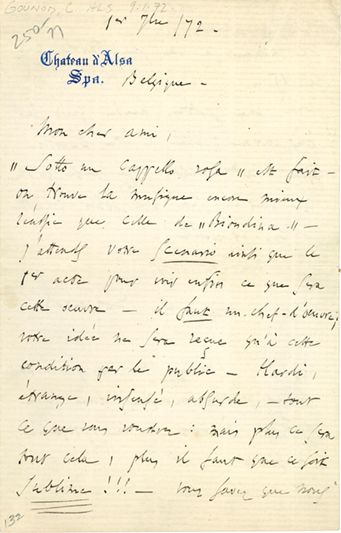 GOUNOD, C ALS 9.1.92
250/77
1er 7bre /72.
Chateau d'Alsa
Spa. Belgique -
Mon cher ami,
" Sotto un cappello rosa " est fait -
on trouve la musique encore mieux
réussie que celle de " Biondina " -
J'attends votre Scenario ainsi que le
1er acte pour voir enfin ce que sera
cette oeuvre - il faut un chef-d'oeuvre;
votre idée ne sera reçue qu'à cette
condition par le public - Hardi,
étrange, insensé, absurde, - tout
ce que vous voudrez : mais plus ce sera
tout cela, plus il faut que ce soit
Sublime !!! - vous savez que nous
132